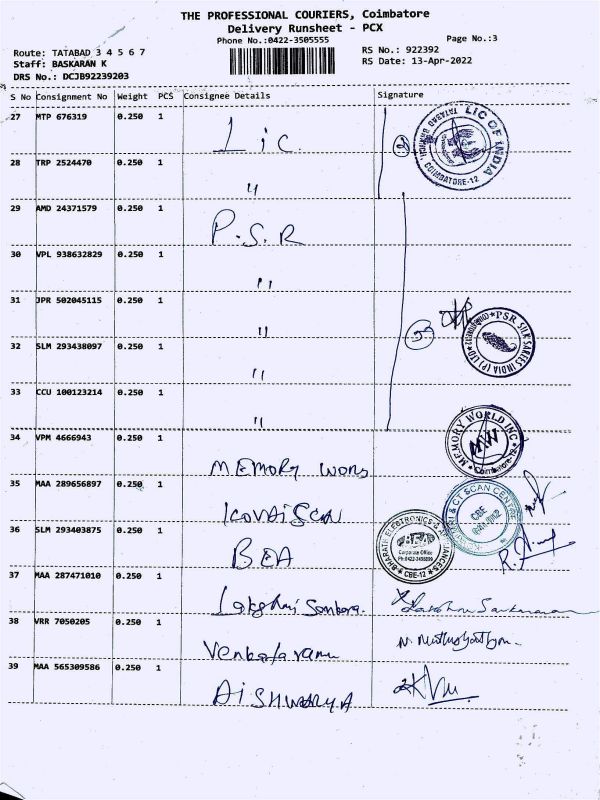 THE PROFESSIONAL COURIERS, Coimbatore
Delivery Runsheet - PCX
Phone No.:0422-3505555
Page No.:3
Route: TATABAD 3 4 5 6 7
Staff: BASKARAN K
DRS No.: DCJB92239203
RS No.: 922392
RS Date: 13-Apr-2022
S No Consignment No Weight PCS Consignee Details Signature
27 MTP 676319 0.250 1 Lic.
LIC OF INDIA
TATABAD BRANCH
COIMBATORE-12
28 TRP 2524470 0.250 1 "
29 AMD 24371579 0.250 1 P.S.R
30 VPL 938632829 0.250 1 "
31 JPR 502045115 0.250 1 "
PSR SILK SAREES INDIA (P) LTD
32 SLM 293438097 0.250 1 "
33 CCU 100123214 0.250 1 "
34 VPM 4666943 0.250 1 MEMORY
MEMORY WORLD INC
MW
Coimbatore-12
35 MAA 289656897 0.250 1
& CT SCAN CENTRE
CBE
36 SLM 293403875 0.250 1 BEA
BHARATH ELECTRONICS &
BEA
Corporate Office
CBE-12
37 MAA 287471010 0.250 1
38 VRR 7050205 0.250 1
39 MAA 565309586 0.250 1 AISHWARYA